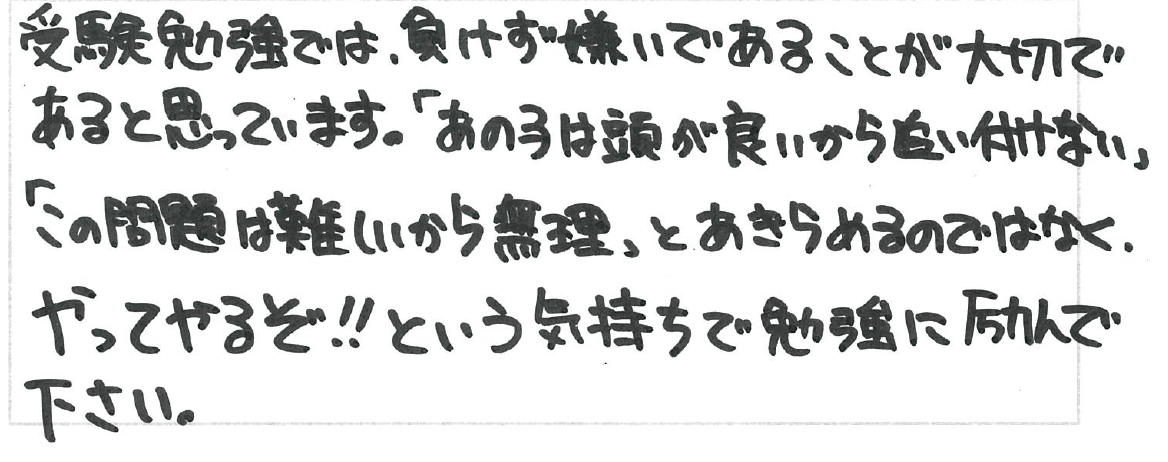 受験勉強では、負けず嫌いであることが大切で
あると思っています。「あの子は頭が良いから追い付けない」
「この問題は難しいから無理」とあきらめるのではなく、
やってやるぞ!!という気持ちで勉強に励んで
下さい。